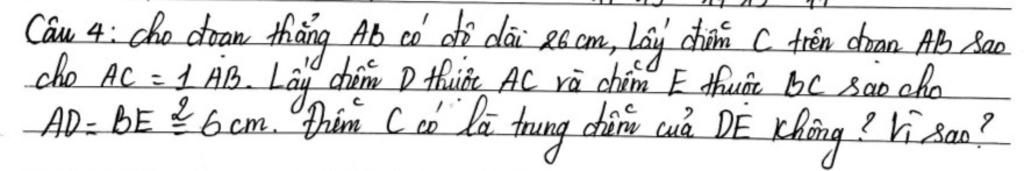 Câu 4: Cho đoạn thẳng AB có độ dài 26 cm, Lấy điểm C trên đoạn AB sao
cho AC = 1/2 AB. Lấy điểm D thuộc AC và điểm E thuộc BC sao cho
AD = BE = 6 cm. Điểm C có là trung điểm của DE không? Vì sao?